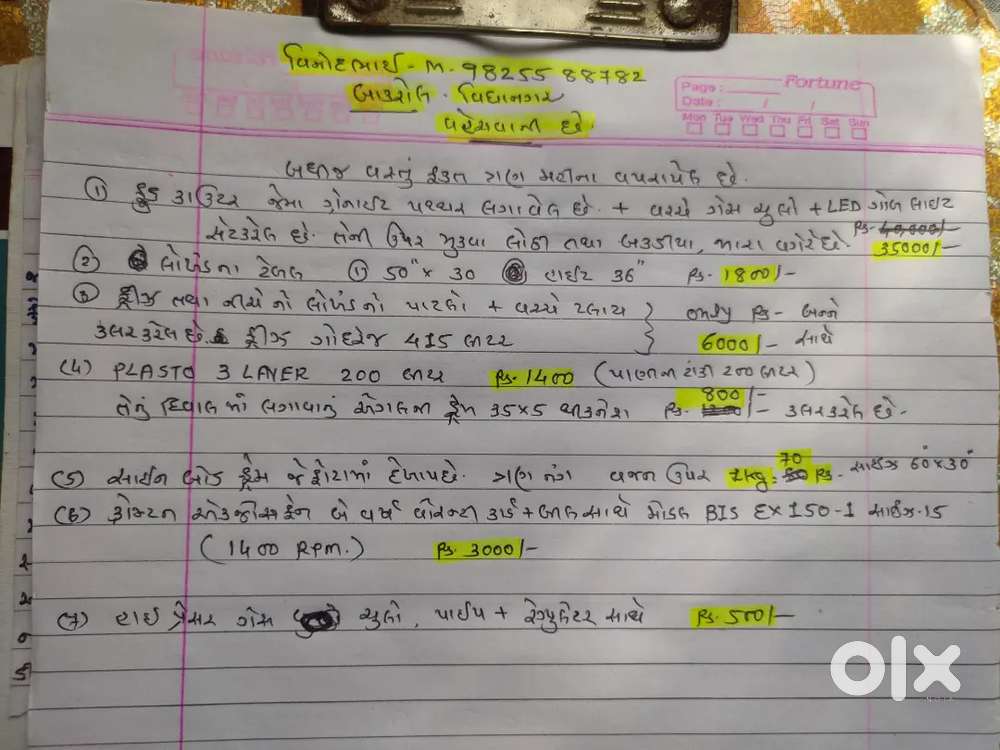 વિનોદભાઈ - M. 98255 88782
બાકરોલ - વિદ્યાનગર
વહેચવાની છે.
Fortune
Page :
Date : / /
Mon Tue Wed Thu Fri Sat Sun
બધીજ વસ્તું ફક્ત ત્રણ મહીના વપરાયેલ છે.
(1) ફુડ કાઉટર જેમા ગ્રેનાઈટ પથ્થર લગાવેલ છે. + વચ્ચે ગેસ ચુલો + LED ગોળ લાઈટ
સેટકરેલ છે. તેની ઉપર મુકવા લોઢી તથા બકડીયા, જારા વગેરે છે. Rs. 40,000/-
35000/-
(2) લોખંડના ટેબલ (1) 50" x 30 હાઈટ 36" Rs. 1800/-
(3) ફ્રીઝ તથા નીચે નો લોખંડનો પાટલો + વચ્ચે પ્લાય only Rs - બન્ને
કલરકરેલ છે. ફ્રીઝ ગોદરેજ 415 લીટર 6000/- સાથે
(4) PLASTO 3 LAYER 200 લીટર Rs. 1400 (પાણીની ટાંકી 200 લીટર)
તેનું દિવાલ માં લગાવાનું એંગલની ફ્રેમ 35x5 થીકનેશ Rs. 800/- કલરકરેલ છે.
(5) સાઈન બોર્ડ ફ્રેમ જે ફોટામાં દેખાય છે. ત્રણ નંગ વજન ઉપર 1 kg = 70 Rs. સાઈઝ 60" x 30"
(6) કોમ્ટન એકઝોસફેન બે વર્ષ વોરન્ટી કાર્ડ + બીલ સાથે મોડલ BIS EX 150-1 સાઈઝ-15
(1400 RPM.) Rs. 3000/-
(7) હાઈ પ્રેસર ગેસ ચુલો, પાઈપ + રેગ્યુલેટર સાથે Rs. 500/-
olx
INDIA